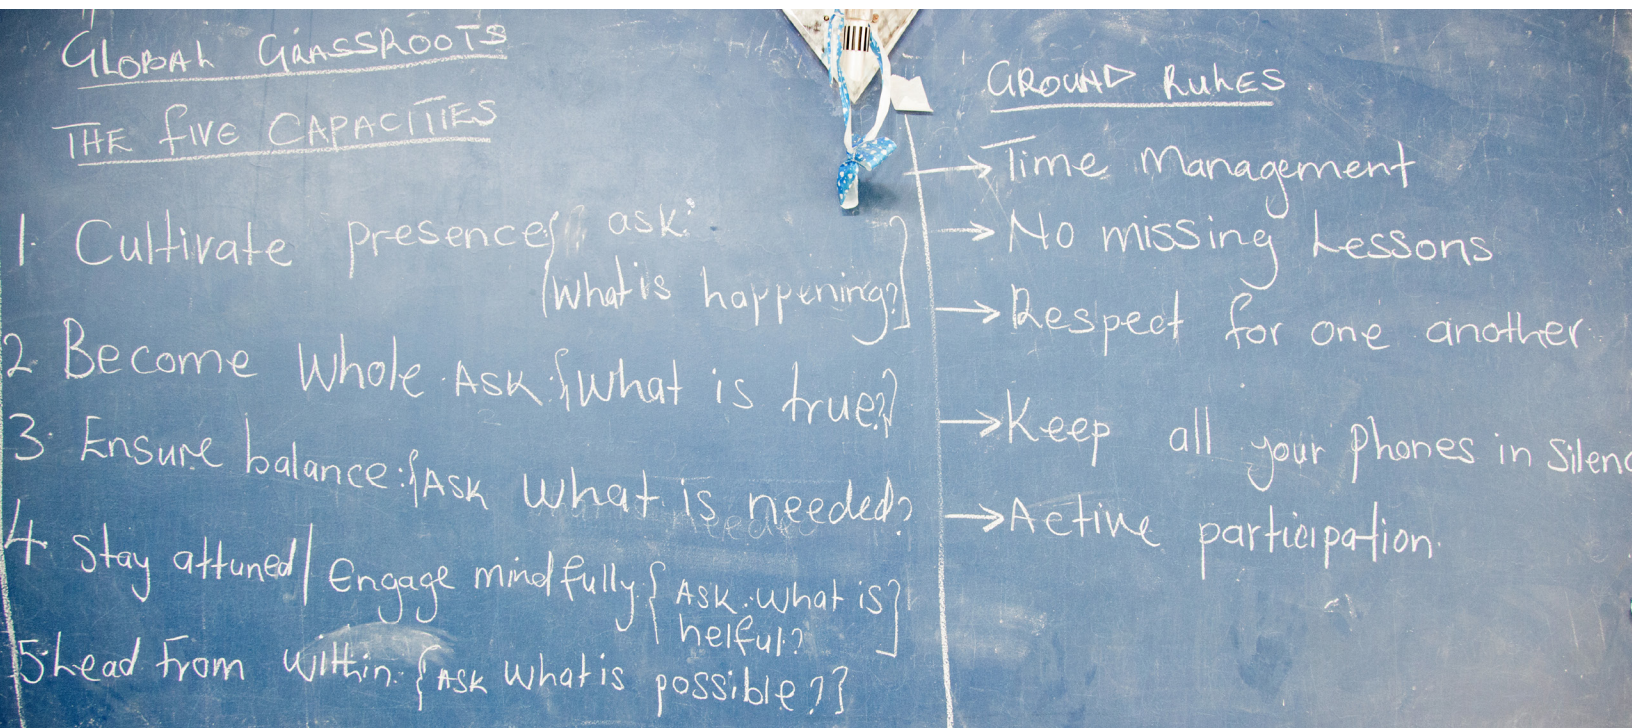 GLOBAL GRASSROOTS
THE five CAPACITIES
1. Cultivate presence{ ask:
{What is happening?}
2 Become Whole. ASK:{What is true?}
3. Ensure balance:{ASK What is needed?
4. Stay attuned/ Engage mindfully.{ASK: What is}
helful?
5. Lead from within.{ASK What is possible??}
GROUND RULES
→ Time Management
→ No missing Lessons
→ Respect for one another.
→ Keep all your Phones in Silenc
→ Active participation.